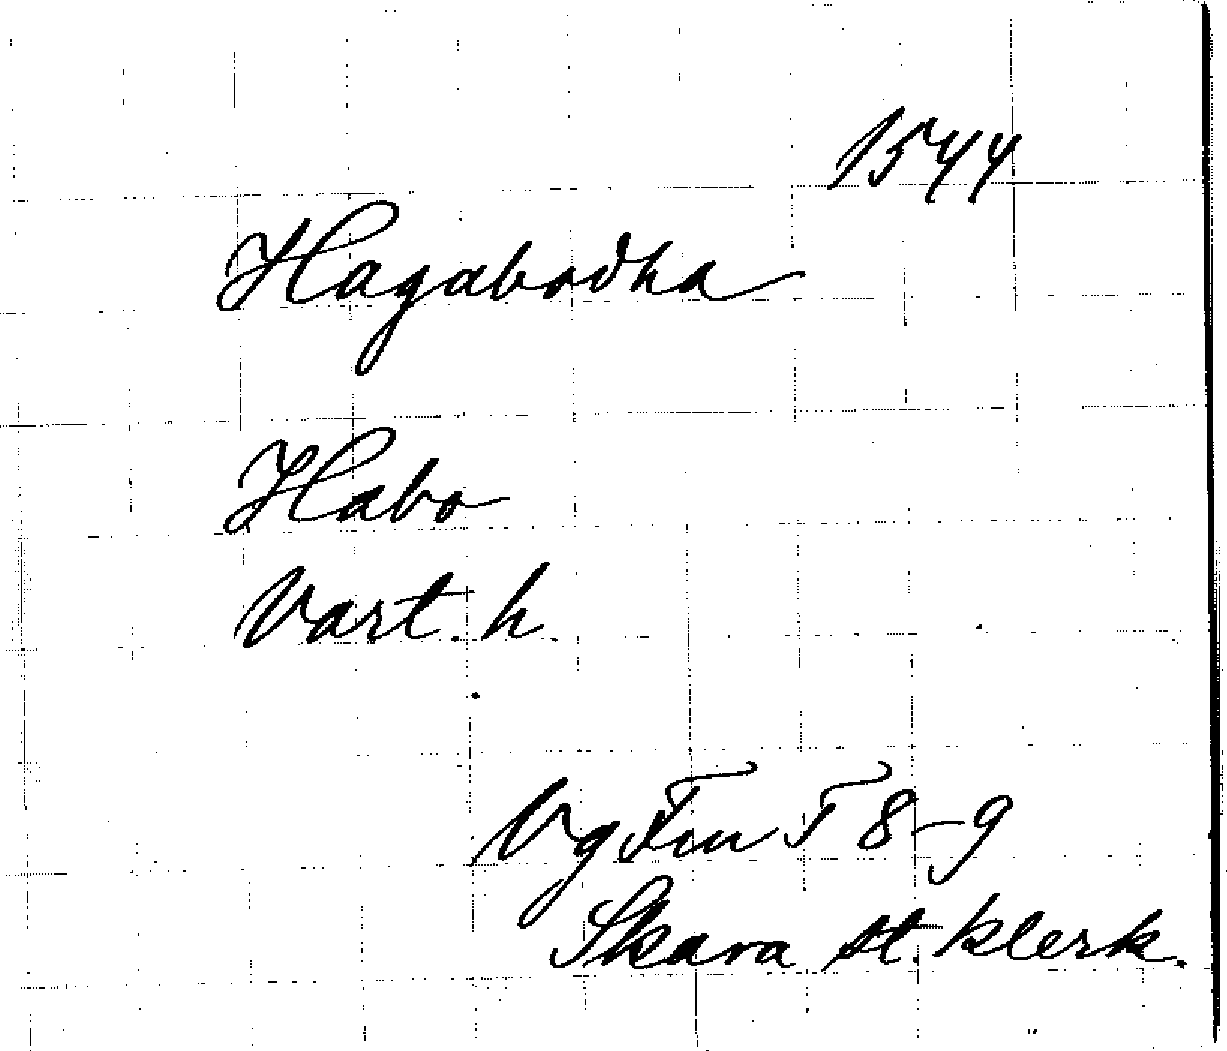 1544
Hagabodha
Habo
Vart. h.
Vg Fin T 8-9
Skara st. klerk.